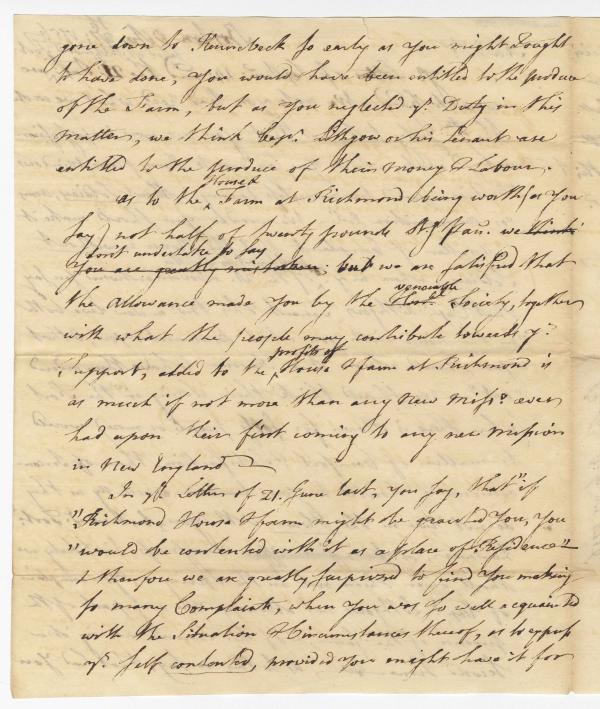 gone down to Kennebeck so early as you might & ought
to have done, you would have been entitled to the produce
of the Farm, but as you neglected yr. Duty in this
matter, we think Capt. Lithgow or his Tenant are
entitled to the produce of their money & Labour.
as to the House & Farm at Richmond being worth (as you
say) not half of twenty pounds St. p an. we think
don't undertake to say
you are greatly mistaken; but we are satisfied that
the allowance made you by the Honr. venerable Society, together
with what the people may contribute towards yr.
Support, added to the profits of House & farm at Richmond is
as much if not more than any New Missy. ever
had upon their first coming to any new mission
in New England
In yr. Letter of 21. June last, you say, that "if
"Richmond House & farm might be granted you, you
"would be contented with it as a place of Residence"
& therefore we are greatly surprized to find you making
so many Complaints, when you was so well acquainted
with the Situation & Circumstances thereof, as to express
yr. self contented, provided you might have it for